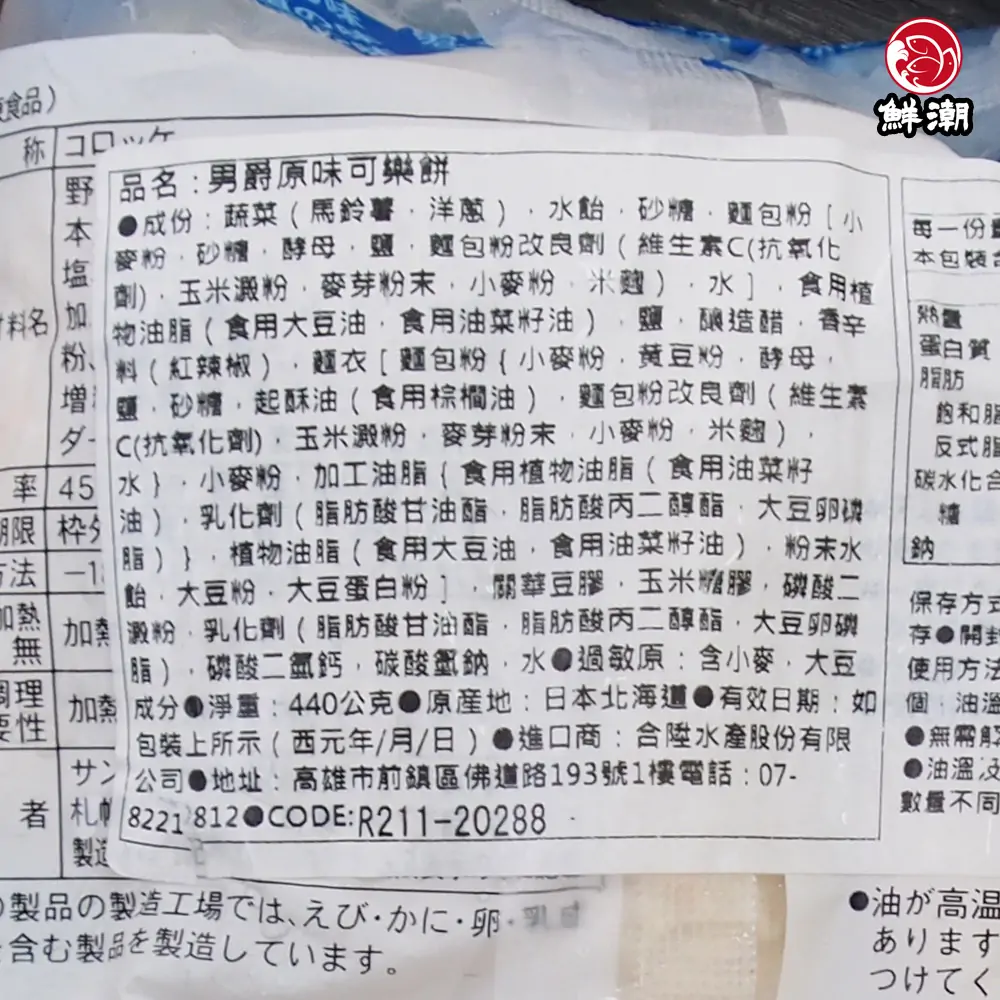 鮮潮
食品)
称
コロッケ
野
本
塩
料名
加
粉、
増
ダ
率
45
期限
枠
方法
加熱
無
加熱
調理
要性
加熱
サン
者
札幌
製造
品名：男爵原味可樂餅
●成份：蔬菜(馬鈴薯．洋蔥)．水飴．砂糖．麵包粉[小
麥粉．砂糖．酵母．鹽．麵包粉改良劑(維生素C(抗氧化
劑)．玉米澱粉．麥芽粉末．小麥粉．米麴)．水]．食用植
物油脂(食用大豆油．食用油菜籽油)．鹽．釀造醋．香辛
料(紅辣椒)．麵衣[麵包粉{小麥粉．黃豆粉．酵母．
鹽．砂糖．起酥油(食用棕櫚油)．麵包粉改良劑(維生素
C(抗氧化劑)．玉米澱粉．麥芽粉末．小麥粉．米麴)．
水}．小麥粉．加工油脂{食用植物油脂(食用油菜籽
油)．乳化劑(脂肪酸甘油酯．脂肪酸丙二醇酯．大豆卵磷
脂)}．植物油脂(食用大豆油．食用油菜籽油)．粉末水
飴．大豆粉．大豆蛋白粉]．關華豆膠．玉米糖膠．磷酸二
澱粉．乳化劑(脂肪酸甘油酯．脂肪酸丙二醇酯．大豆卵磷
脂)．磷酸二氫鈣．碳酸氫鈉．水●過敏原：含小麥．大豆
成分●淨重：440公克●原產地：日本北海道●有效日期：如
包裝上所示(西元年/月/日)●進口商：合陞水產股份有限
公司●地址：高雄市前鎮區佛道路193號1樓電話：07-
8221812●CODE:R211-20288
每一份量
本包裝含
熱量
蛋白質
脂肪
飽和脂
反式脂
碳水化合
糖
鈉
保存方式
存●開封
使用方法
個．油溫
●無需解
●油溫及
數量不同
の製品の製造工場では、えび・かに・卵・乳
を含む製品を製造しています。
●油が高温
あります
つけてく